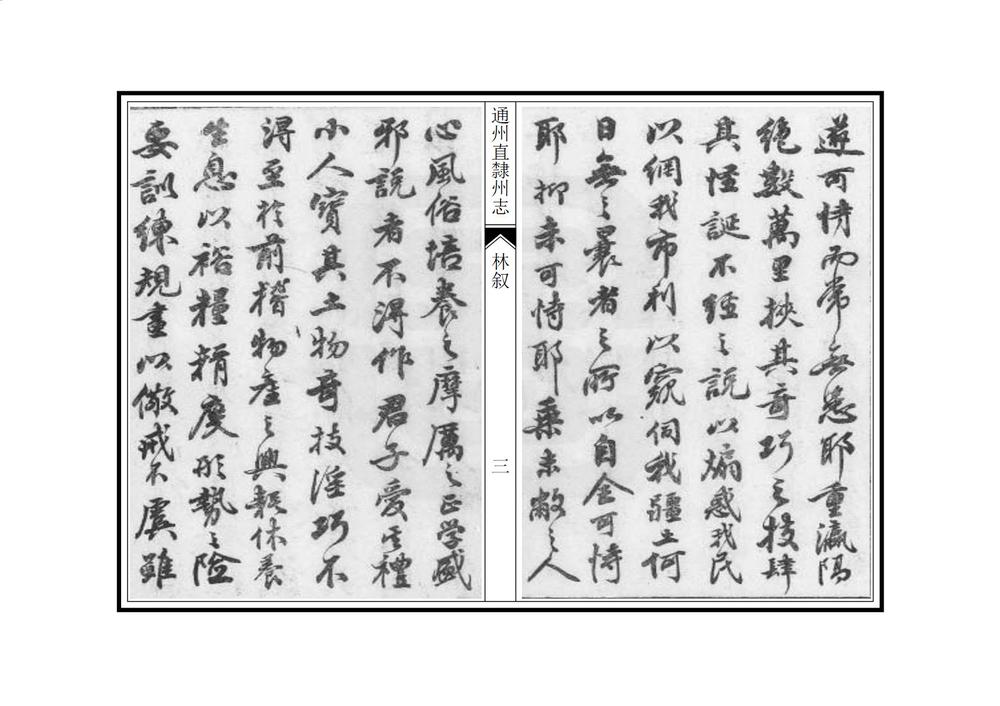 遂可恃而常無恙耶重瀛隔
絶數萬里挾其奇巧之技肆
其怪誕不經之説以煽惑我民
以網我市利以窺伺我疆土何
日無之曩者之所以自全可恃
耶抑未可恃耶乗未敝之人
通州直隸州志
林叙
三
心風俗培養之摩厲之正学盛
邪説者不得作君子愛其禮
小人寶其土物奇技淫巧不
得至於前稽物產之興耗休養
生息以裕糧糈度形勢之險
要訓練規畫以儆戒不虞雖